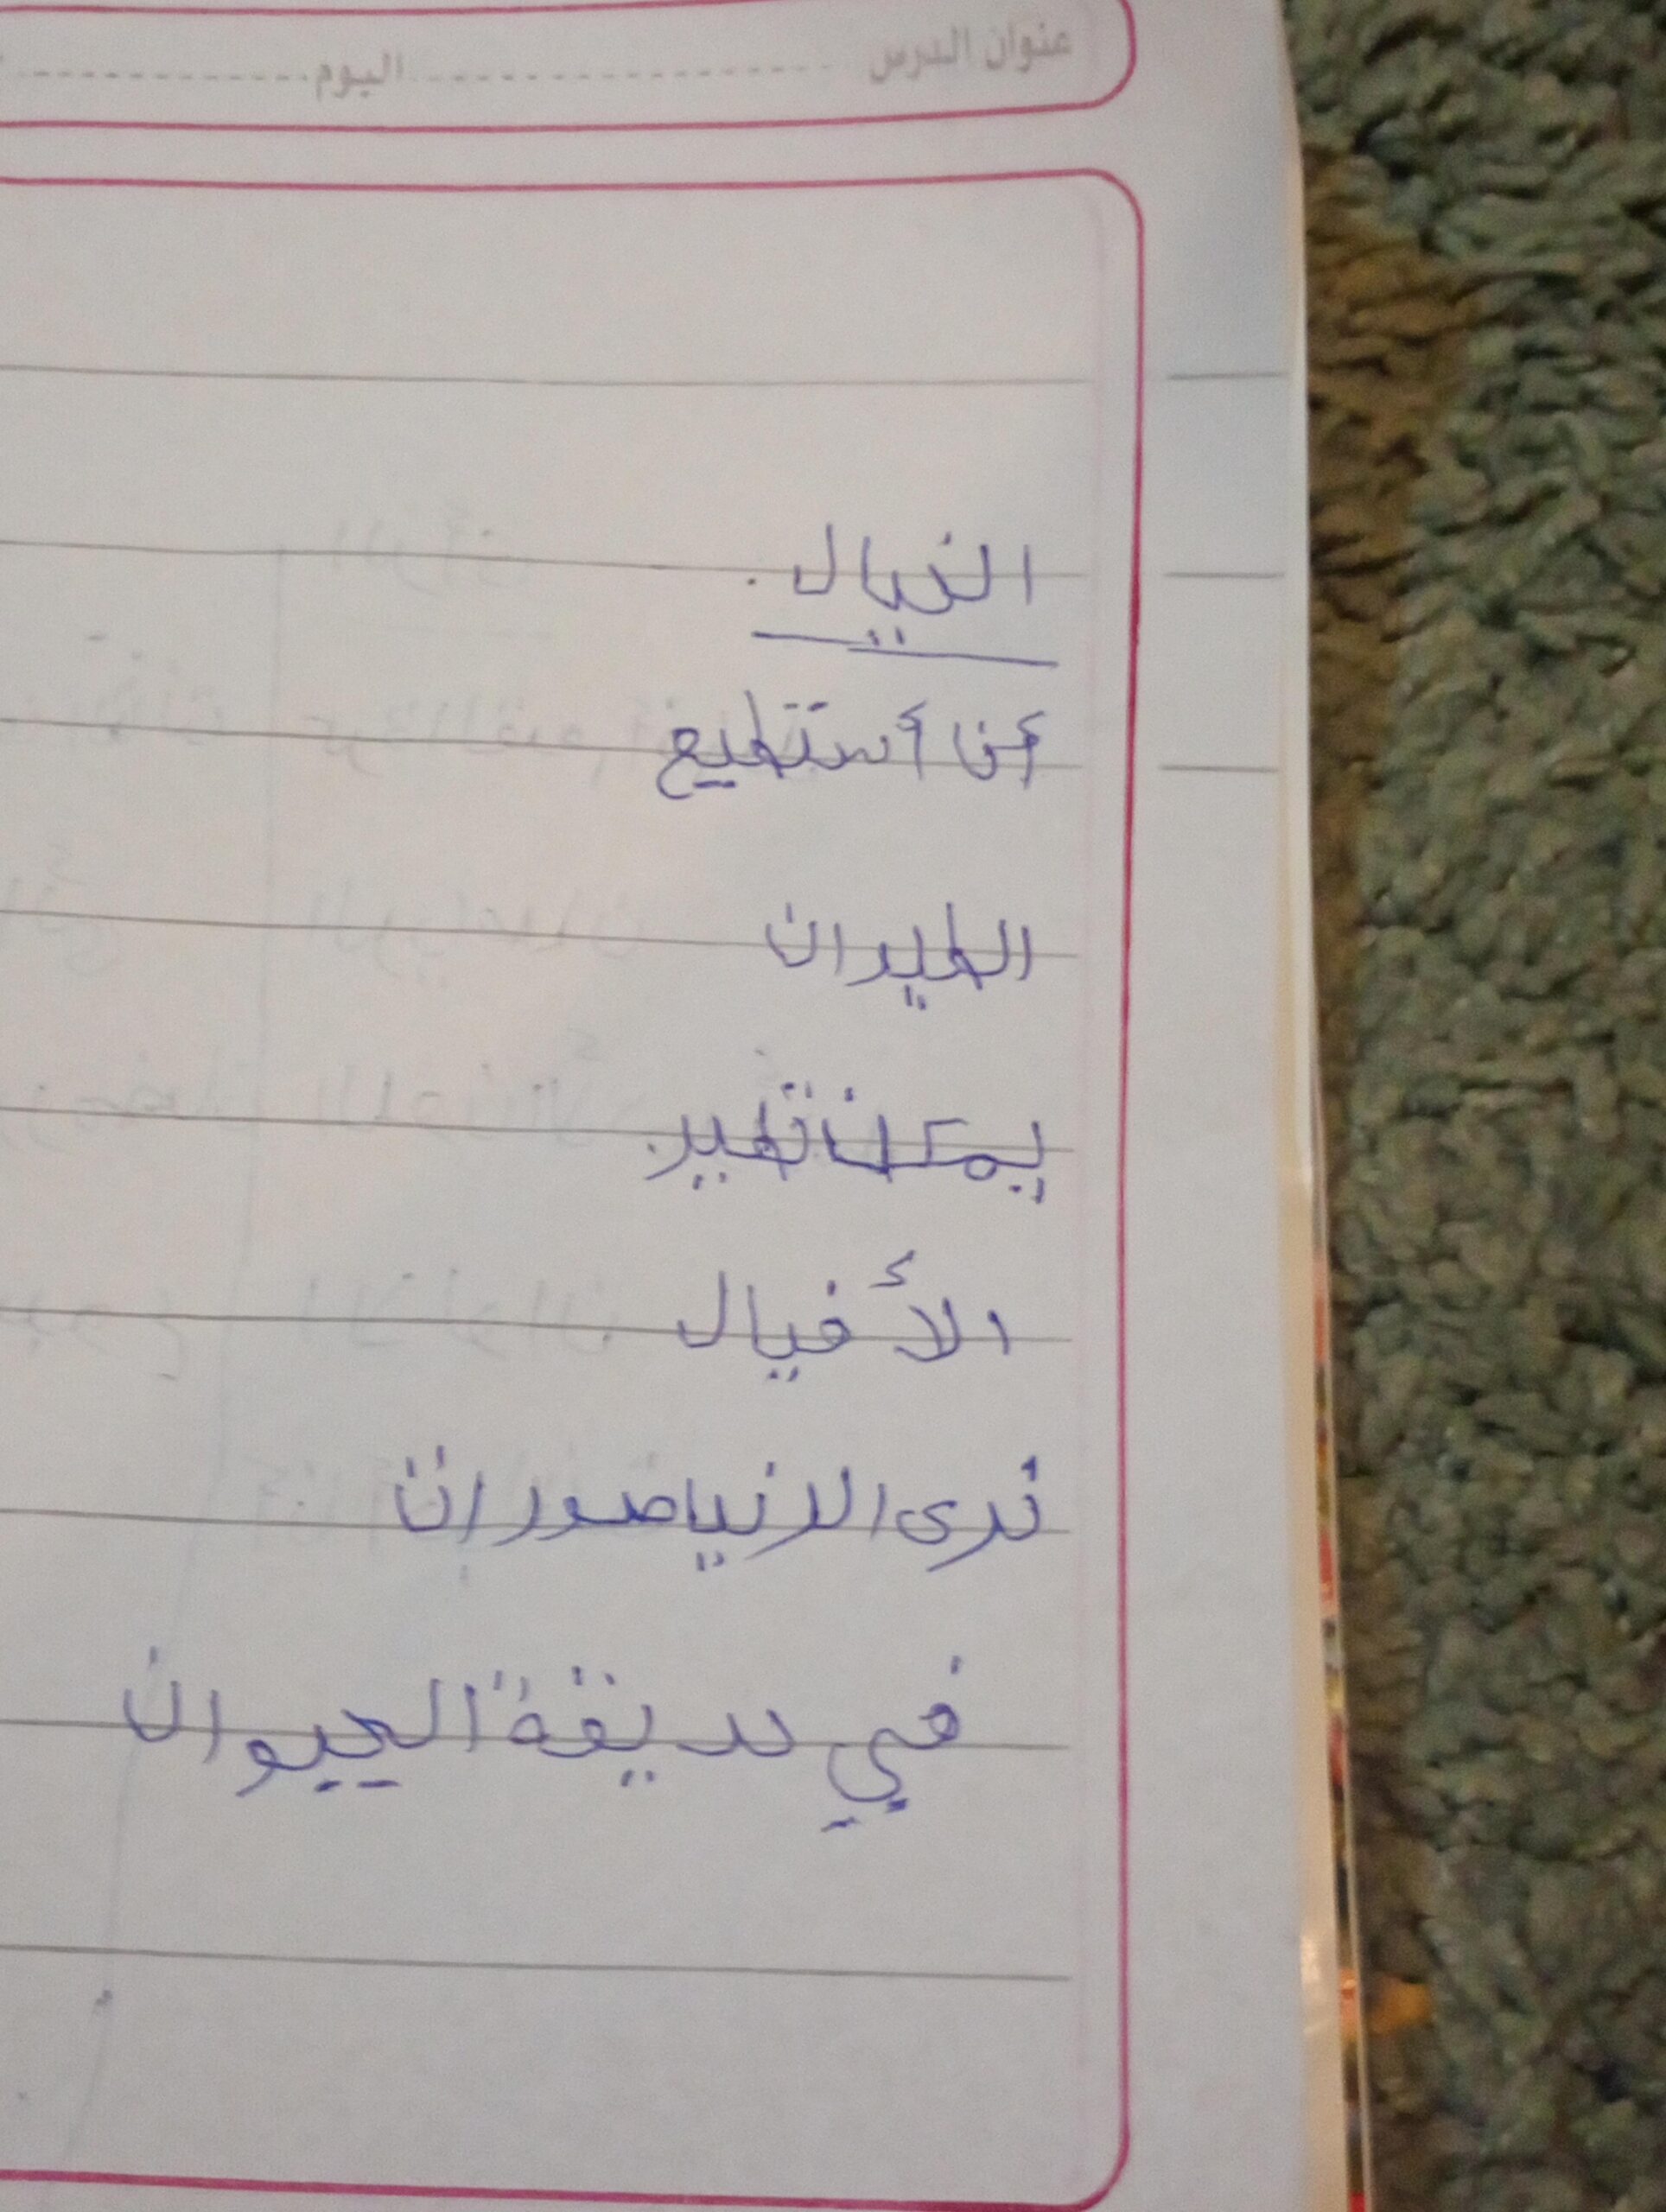 عنوان الدرس ........ اليوم ........
الخيال .
أن أستطيع
الطيران
يمكن تطير .
الأفيال
نرى الدنياصوران
في حديقة الحيوان